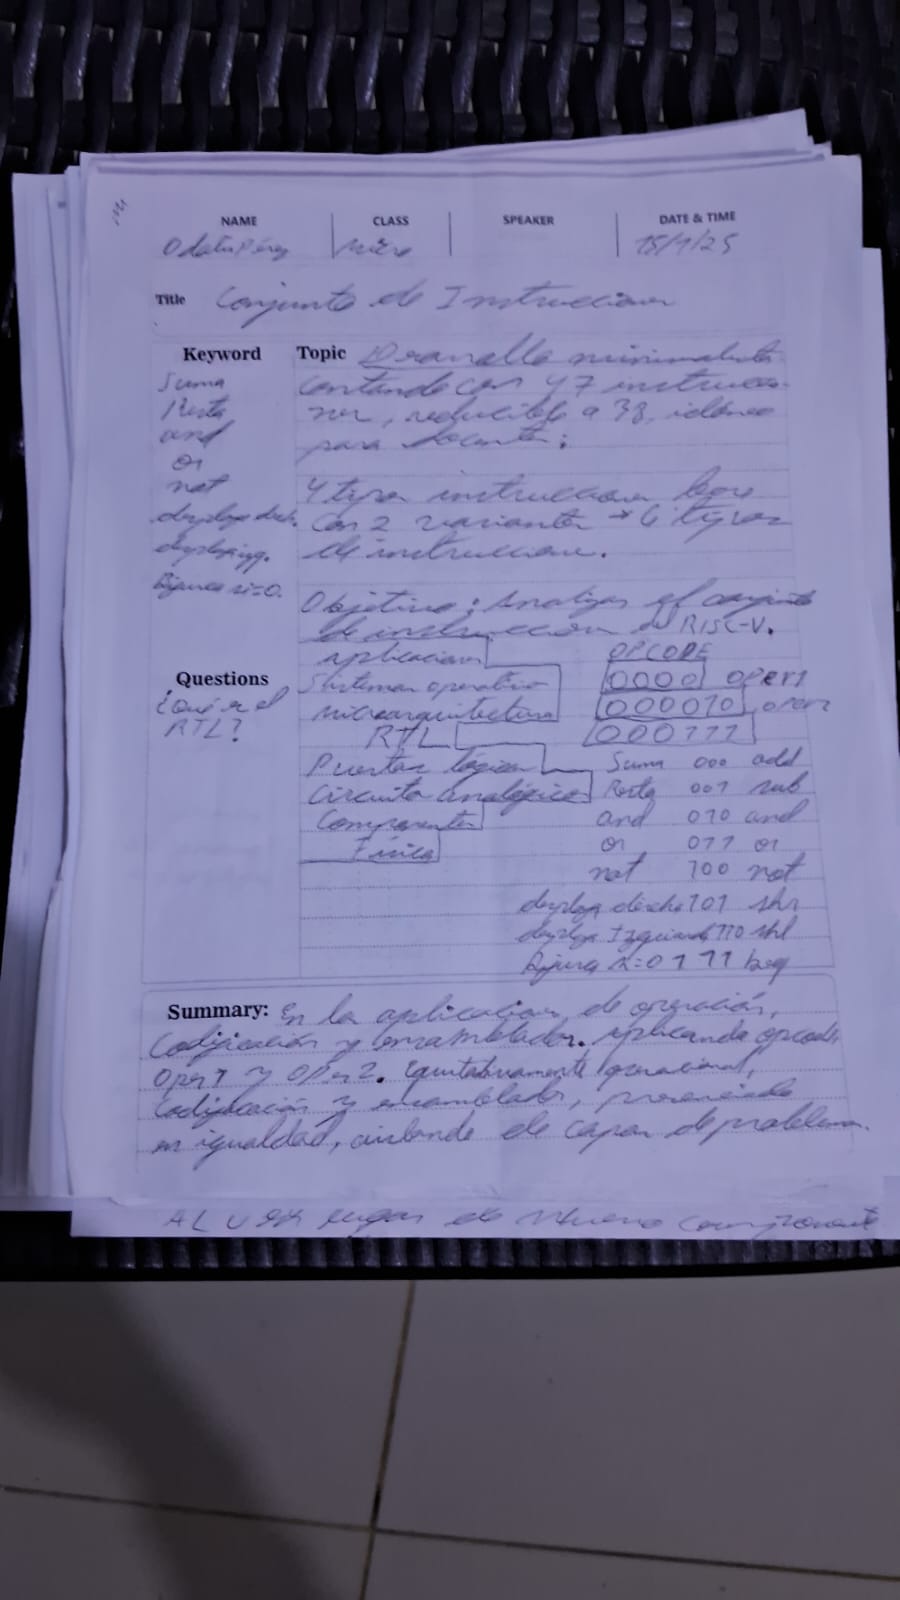 NAME CLASS SPEAKER DATE & TIME
Odalis Pérez Micro 15/1/25
Title Conjunto de Instrucciones
Keyword
Suma
Resta
and
or
not
desplaza dech.
desplaza izq.
Bifurca si=0.
Questions
¿Qué es el
RTL?
Topic Desarrollo minimalista
contando con 47 instruccio-
nes, reducible a 38, idóneo
para docente;
4 tipos instrucciones base
con 2 variantes → 6 tipos
de instrucciones.
Objetivo: Analizar el conjunto
de instrucción de RISC-V.
aplicaciones
Sistemas operativo
Microarquitectura
RTL
Puertas lógica
Circuito analógico
Componentes
Física
OPCODE
0000 oper1
000010 oper2
000111
Suma 000 add
Resta 001 sub
and 010 and
or 011 or
not 100 not
desplaza derecha 101 shr
desplaza Izquierda 110 shl
Bifurca si=0 111 beq
Summary: En la aplicación de operación,
Codificación y ensamblador. Aplicando opcode,
Oper1 y Oper2. Equitativamente operacional,
Codificación y ensamblador, presenciado
en igualdad, aislando de capas de problema.
ALU en lugar de componente